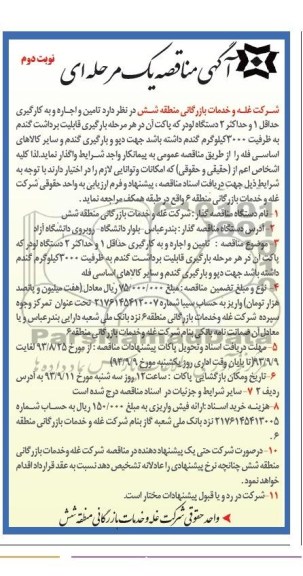 نوبت دوم
آگهی مناقصه یک مرحله ای
شرکت غله و خدمات بازرگانی منطقه شش در نظر دارد تامین و اجاره و به کارگیری
حداقل ۱ و حداکثر ۲ دستگاه لودر که پاکت آن در هر مرحله بارگیری قابلیت برداشت گندم
به ظرفیت ۳۰۰۰کیلوگرم گندم داشته باشد جهت دپو و بارگیری گندم و سایر کالاهای
اساسی فله را از طریق مناقصه عمومی به پیمانکار واجد شرایط واگذار نماید.لذا کلیه
اشخاص اعم از (حقیقی و حقوقی) که امکانات وتوانایی لازم را در اختیار دارند با توجه به
شرایط ذیل جهت دریافت اسناد مناقصه ، پیشنهاد و فرم ارزیابی به واحد حقوقی شرکت
غله و خدمات بازرگانی منطقه ۶ واقع در طبقه همکف مراجعه نماید .
۱- نام دستگاه مناقصه گذار : شرکت غله و خدمات بازرگانی منطقه شش
۲- آدرس دستگاه مناقصه گذار : بندرعباس -بلوار دانشگاه - روبروی دانشگاه آزاد
۳- موضوع مناقصه : تامین و اجاره و به کارگیری حداقل ۱ و حداکثر ۲ دستگاه لودر که
پاکت آن در هر مرحله بارگیری قابلیت برداشت گندم به ظرفیت ۳۰۰۰کیلوگرم گندم
داشته باشد جهت دپو و بارگیری گندم و سایر کالاهای اساسی فله
۴- نوع و مبلغ تضمین مناقصه : مبلغ ۷۵/۰۰۰/۰۰۰ ریال معادل (هفت میلیون و پانصد
هزار تومان) واریز به حساب سیبا شماره ۲۱۷۶۱۴۵۴۱۲۰۰۷ تحت عنوان تمرکز وجوه
سپرده شرکت غله وخدمات بازرگانی منطقه۶ نزد بانک ملی شعبه دارایی بندرعباس و یا
معادل آن ضمانت نامه بانکی بنام شرکت غله و خدمات بازرگانی منطقه۶
۵- مهلت دریافت اسناد و تحویل پاکات پیشنهادات مناقصه : از مورخ ۹۳/۸/۲۵ لغایت
۹۳/۹/۹(تا پایان وقت اداری روز یکشنبه مورخ ۹۳/۹/۹)
۶- تاریخ ومکان بازگشایی پاکات : ساعت۱۲ روز سه شنبه مورخ ۹۳/۹/۱۱ به آدرس
ردیف ۲ ۷- سایر شرایط و جزئیات در اسناد مناقصه درج شده است
۸- هزینه خرید اسناد :ارائه فیش واریزی به مبلغ ۱۵۰/۰۰۰ ریال به حساب شماره
۲۱۷۶۱۴۵۴۱۳۰۰۵ نزد بانک ملی شعبه گاز بنام شرکت غله و خدمات بازرگانی منطقه
۶.
۱۰- درصورت شرکت حتی یک پیشنهاد دهنده در مناقصه شرکت غله وخدمات بازرگانی
منطقه شش چنانچه نرخ پیشنهادی را عادلانه تشخیص دهد نسبت به عقد قرارداد اقدام
خواهد نمود.
۱۱- شرکت در رد و یا قبول پیشنهادات مختار است.
واحد حقوقی شرکت غله و خدمات بازرگانی منطقه شش